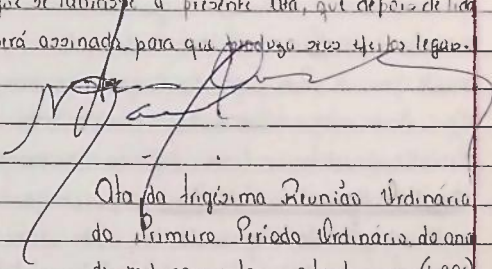 que se lavrasse a presente Ata, que depois de lida
será assinada para que produza seus efeitos legais.
Ata da trigésima Reunião Ordinária
do Primeiro Período Ordinário do ano
de